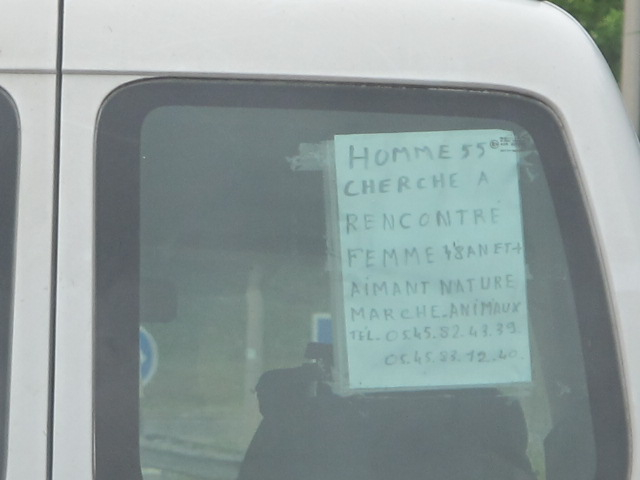 HOMME 55
CHERCHE A
RENCONTRE
FEMME 48 AN ET+
AIMANT NATURE
MARCHE.ANIMAUX
TEL. 05.45.82.43.39.
05.45.83.12.40.